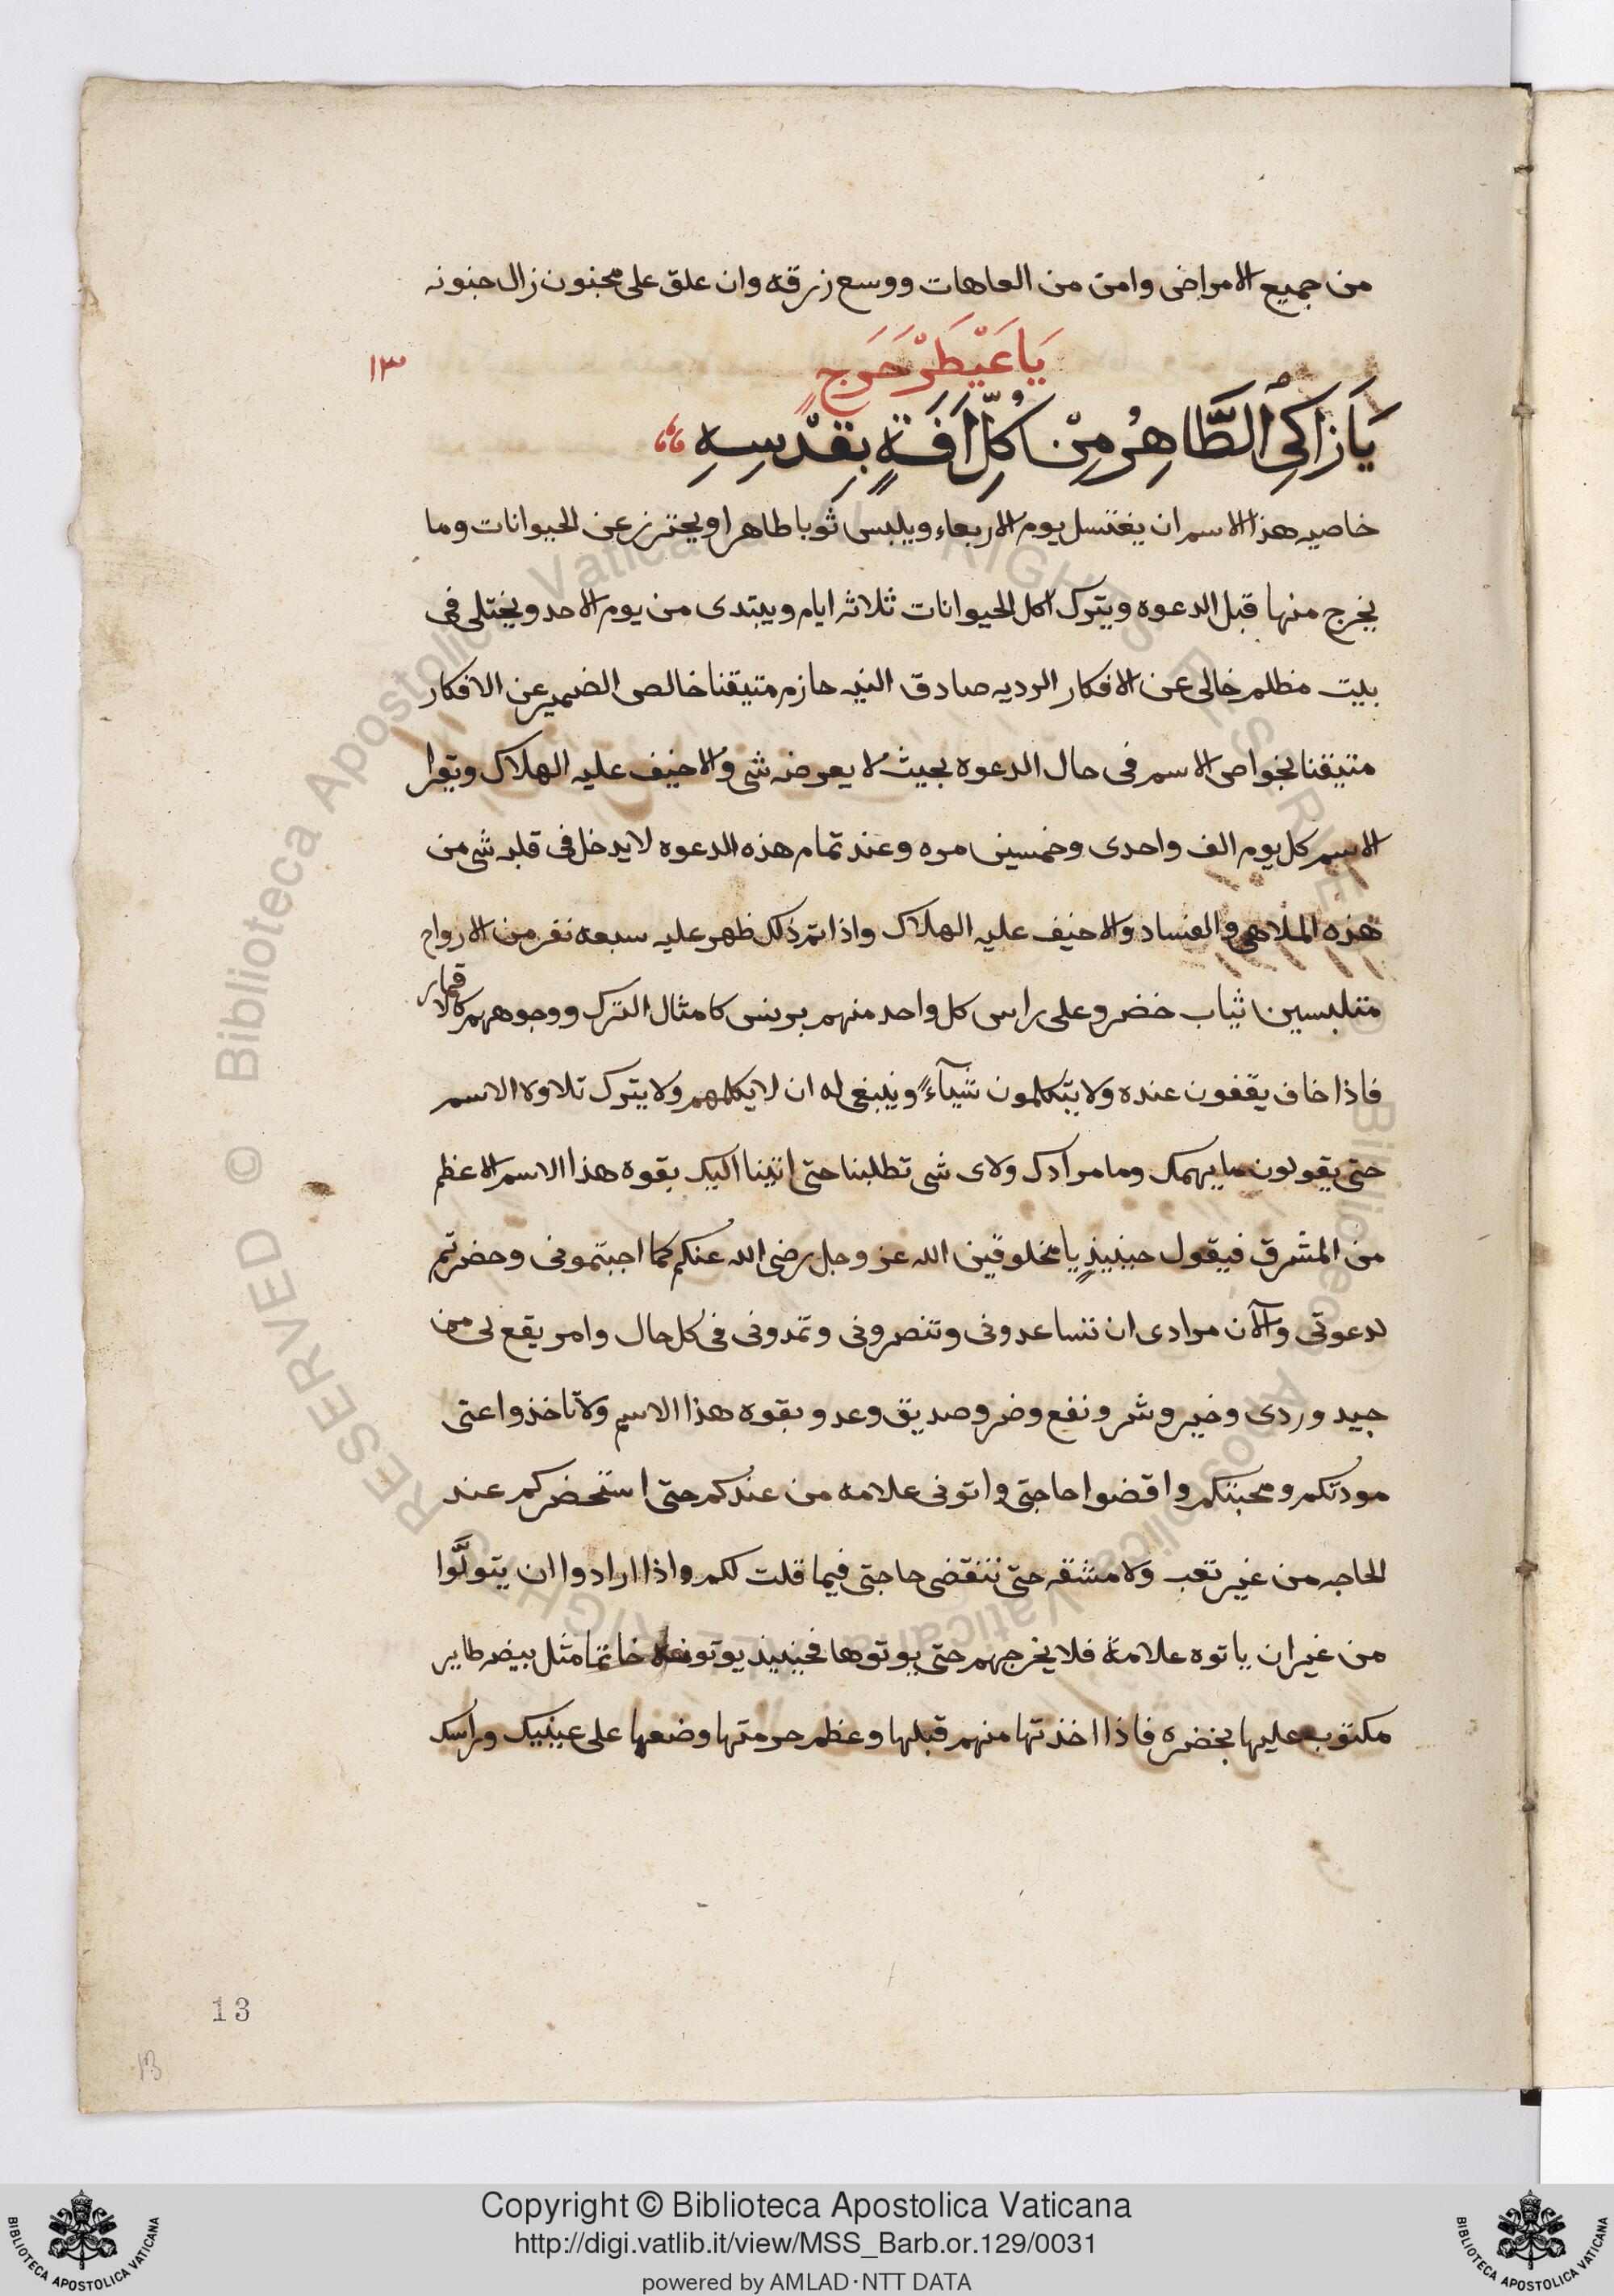 من جميع الامراض وامن من العاهات ووسع زرقه وان علق على مجنون زال جنونه
يَا عَيْطَرْحَرَجٍ
١٣
يَا زَاكِى الطَّاهِرُ مِنْ كُلِّ اَفَةٍ بِقدْسِهِ
خاصيه هذا الاسم ان يغتسل يوم الاربعاء ويلبس ثوبا طاهرا ويحترز عن الحيوانات وما
يخرج منها قبل الدعوه ويترك اكل الحيوانات ثلاثه ايام ويبتدى من يوم الاحد ويختلى فى
بيت مظلم خالى عن الافكار الرديه صادق النيه حازم متيقنا خالص الضمير عن الافكار
متيقنا بخواص الاسم فى حال الدعوه بحيث لا يعرضه شى والا خيف عليه الهلاك ويقرا
الاسم كل يوم الف واحدى وخمسين مره وعند تمام هذه الدعوه لا يدخل فى قلبه شى من
هذه الملاهى والفساد والا خيف عليه الهلاك واذا تم ذلك ظهر عليه سبعه نفر من الارواح
متلبسين ثياب خضر وعلى راس كل واحد منهم برنس كامثال الترك ووجوههم كالاقمار
فاذا خاف يقفون عنده ولا يتكلمون شيآءً وينبغى له ان لا يكلمهم ولا يترك تلاوه الاسم
حتى يقولون ما يهمك وما مرادك ولاى شى تطلبنا حتى اتينا اليك بقوه هذا الاسم الاعظم
من المشرق فيقول حينيذٍ يا مخلوقين الله عز وجل رضى الله عنكم كما اجبتمونى وحضرتم
لدعوتى والآن مرادى ان تساعدونى وتنصرونى وتمدونى فى كل حال وامر يقع لى من
جيد وردى وخير وشر ونفع وضر وصديق وعدو بقوه هذا الاسم ولا تاخذوا عنى
مودتكم ومحبتكم واقضوا حاجتى واتونى علامه من عندكم حتى استحضركم عند
الحاجه من غير تعب ولا مشقه حتى تنقضى حاجتى فيما قلت لكم واذا ارادوا ان يتولَّوا
من غير ان ياتوه علامة فلا يخرجهم حتى يوتوها فحينيذ يوتونه خاتما مثل بيضه طاير
مكتوب عليها بخضره فاذا اخذتها منهم قبلها وعظم حرمتها وضعها على عينيك وراسك
13
13
© Biblioteca Apostolica Vaticana
RIGHTS RESERVED
Copyright © Biblioteca Apostolica Vaticana
http://digi.vatlib.it/view/MSS_Barb.or.129/0031
powered by AMLAD·NTT DATA
BIBLIOTECA APOSTOLICA VATICANA
BIBLIOTECA APOSTOLICA VATICANA